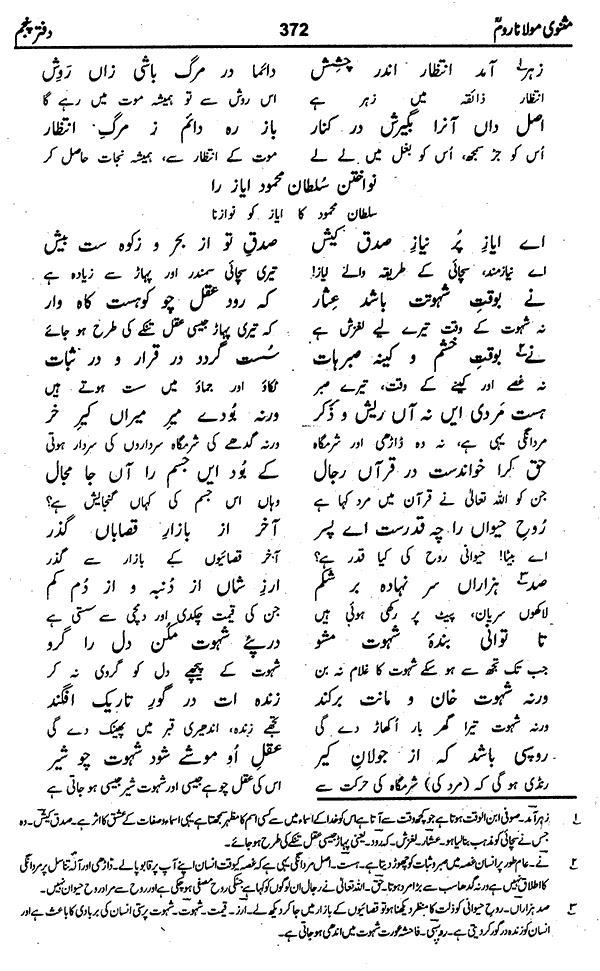 مثنوی مولانا روم 372 دفتر پنجم
زہر آمد انتظار اندر چشش دائما در مرگ باشی زاں روش
انتظار ذائقہ میں زہر ہے اس روش سے تو ہمیشہ موت میں رہے گا
اصل داں آنرا بگیرش در کنار باز رہ دائم ز مرگِ انتظار
اُس کو جڑ سمجھ، اُس کو بغل میں لے لے موت کے انتظار سے، ہمیشہ نجات حاصل کر
نواختن سُلطان محمود ایاز را
سلطان محمود کا ایاز کو نوازنا
اے ایازِ پُر نیازِ صدق کیش صدقِ تو از بحر و زکوہ ست بیش
اے نیازمند، سچائی کے طریقہ والے ایاز! تیری سچائی سمندر اور پہاڑ سے زیادہ ہے
نے بوقتِ شہوتت باشد عِثار کہ رود عقلِ چو کوہت کاہ وار
نہ شہوت کے وقت تیرے لیے لغزش ہے کہ تیری پہاڑ جیسی عقل تنکے کی طرح ہو جائے
نے بوقتِ خشم و کینہ صبرہات سُست گردد در قرار و در ثبات
نہ غصے اور کینے کے وقت، تیرے صبر ٹکاؤ اور جماؤ میں ست ہوتے ہیں
ہست مَردی ایں نہ آں ریش و ذَکر ورنہ بُودے میرِ میراں کیرِ خر
مردانگی یہی ہے، نہ وہ ڈاڑھی اور شرمگاہ ورنہ گدھے کی شرمگاہ سرداروں کی سردار ہوتی
حق کِرا خواندست در قرآں رجال کے بُود ایں جسم را آں جا مجال
جن کو اللہ تعالیٰ نے قرآن میں مرد کہا ہے وہاں اس جسم کی کہاں گنجایش ہے؟
رُوحِ حیواں را چہ قدرست اے پسر آخر از بازارِ قصاباں گذر
اے بیٹا! حیوانی روح کی کیا قدر ہے؟ آخر قصائیوں کے بازار سے گذر
صد ہزاراں سر نہادہ بر شکم ارزِ شاں از دُنبہ و از دُم کم
لاکھوں سریاں، پیٹ پر رکھی ہوئی ہیں جن کی قیمت چکدی اور دمچی سے سستی ہے
تا توانی بندۂ شہوت مشو درپئے شہوت مکُن دل را گرو
جب تک تجھ سے ہو سکے شہوت کا غلام نہ بن شہوت کے پیچھے دل کو گردی نہ کر
ورنہ شہوت خان و مانت برکند زندہ ات در گورِ تاریک افگند
ورنہ شہوت تیرا گھر بار اُکھاڑ دے گی تجھے زندہ، اندھیری قبر میں پھینک دے گی
روسپی باشد کہ از جولانِ کیر عقلِ اُو موشے شود شہوت چو شیر
رنڈی ہو گی کہ (مرد کی) شرمگاہ کی حرکت سے اس کی عقل چوہے جیسی اور شہوت شیر جیسی ہو جاتی ہے
۱ زہر آمد۔ صوفی ابن الوقت ہوتا ہے جو کچھ وقت سے آتا ہے اس کو خدا کے اسماء میں سے کسی اسم کا مظہر سمجھتا ہے یہی اسماء و صفات کے عشق کا اثر ہے۔ صدق کیش۔ وہ
جس نے سچائی کو مذہب بنا لیا ہو۔ عشار۔ لغزش۔ کہ رود۔ یعنی پہاڑ جیسی عقل تنکے کی طرح ہو جائے۔
۲ نے۔ عام طور پر انسان غصہ میں صبر و ثبات کو چھوڑ دیتا ہے۔ ہست۔ اصل مردانگی یہی ہے کہ غصہ کیوقت انسان اپنے آپ پر قابو پا لے۔ ڈاڑھی اور آلۂ تناسل پر مردانگی
کا اطلاق نہیں ہے ورنہ گدھا سب سے بڑا مرد ہوتا۔ حق۔ اللہ تعالیٰ نے رجال ان لوگوں کو کہا ہے جنکی روح مصفیٰ ہو چکی ہے اور روح سے مراد روح حیوان نہیں۔
۳ صد ہزاراں۔ روح حیوانی کو ذلت کا منظر دیکھنا ہو تو قصائیوں کے بازار میں جا کر دیکھ لے۔ ارز۔ قیمت۔ شہوت۔ شہوت پرستی انسان کی بربادی کا باعث ہے اور
انسان کو زندہ درگور کر دیتی ہے۔ روسپی۔ فاحشہ عورت شہوت میں اندھی ہو جاتی ہے۔